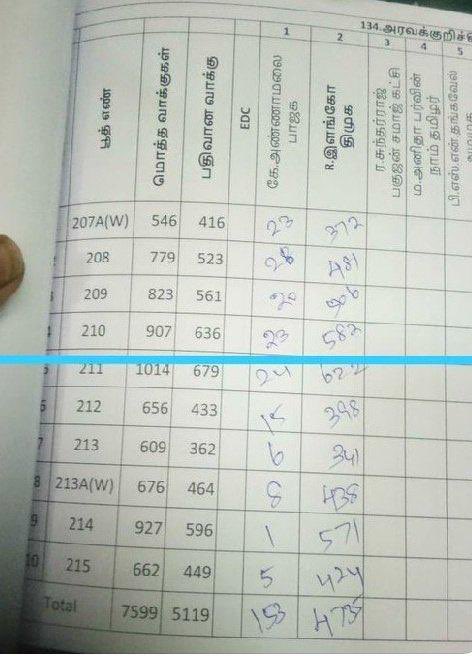 134.அரவக்குறிச்சி
1 2 3 4 5
பூத் எண் மொத்த வாக்குகள் பதிவான வாக்கு EDC கே.அண்ணாமலை பாஜக R.இளங்கோ திமுக ர.சுந்தர்ராஜ் பகுஜன் சமாஜ் கட்சி ம.அனிதா பர்வின் நாம் தமிழர் பி.எஸ்.என்.தங்கவேல்
207A(W) 546 416 23 372
208 779 523 28 481
209 823 561 20
210 907 636 23 582
5 211 1014 679 24 622
6 212 656 433 15 398
7 213 609 362 6 341
8 213A(W) 676 464 8 438
9 214 927 596 1 571
10 215 662 449 5 424
Total 7599 5119 153 4735